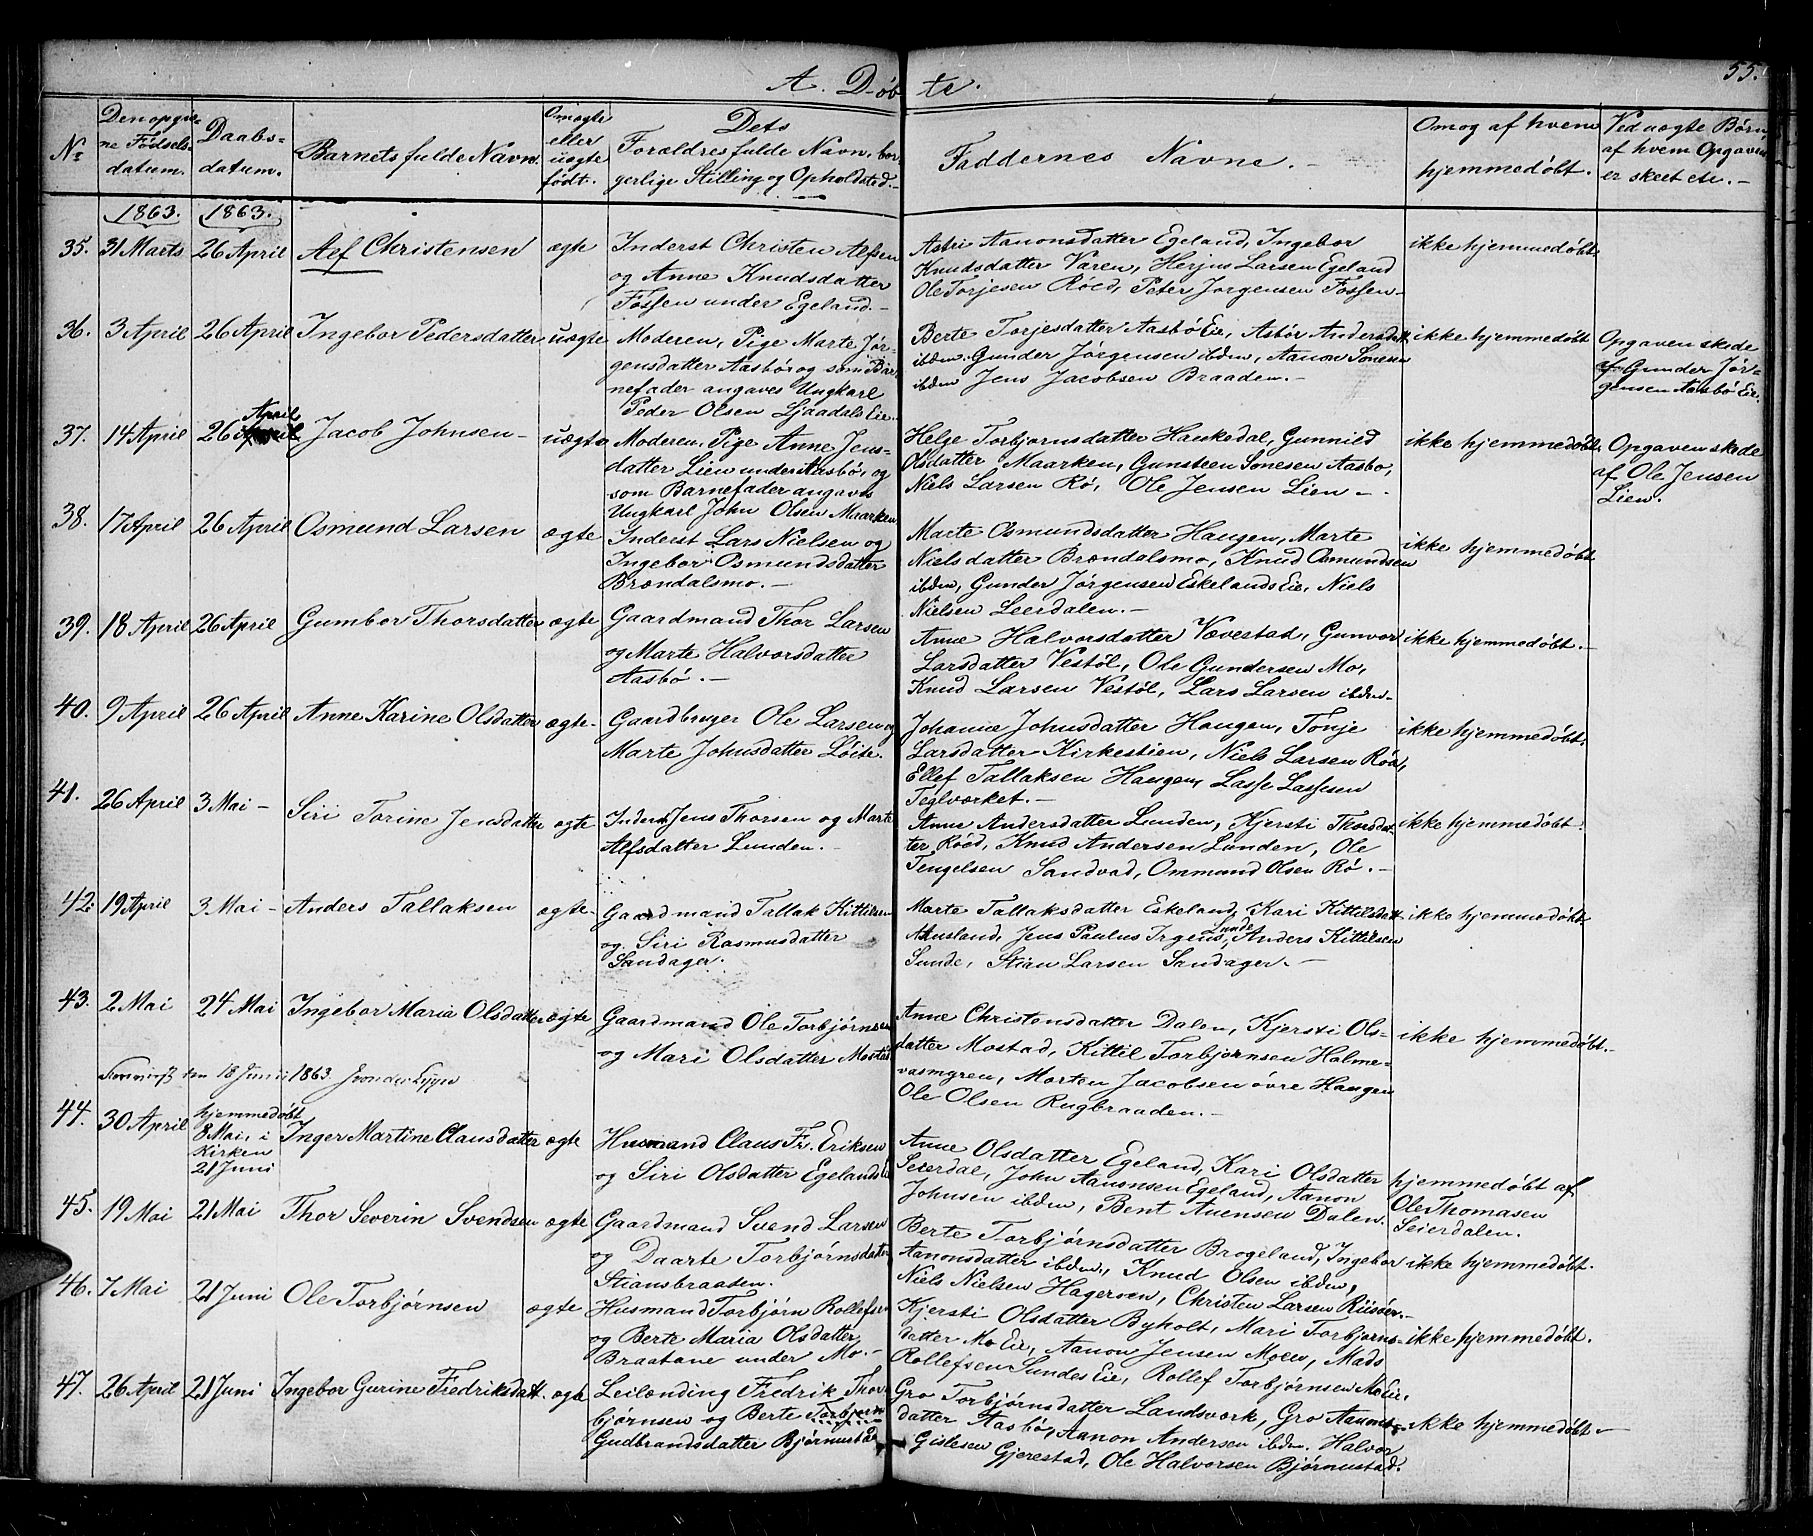 A. Døbte.
55.
No
Den opgivne Fødselsdatum.
Daabsdatum.
Barnets fulde Navn.
Om ægte eller uægte født.
Dets Forældres fulde Navn, borgerlige Stilling og Opholdsted.
Faddernes Navne.
Om og af hvem hjemmedøbt.
Ved uægte Børn, af hvem Opgaven er skeet etc.
1863. 1863.
35. 31 Marts 26 April Alf Christensen ægte
Inderst Christen Alfsen
og Anne Knudsdatter
Fossen under Egeland.
Astri Aanonsdatter Egeland, Ingebor
Knudsdatter Varen, Herjus Larsen Egeland
Ole Torjesen Röed, Peter Jørgensen Fossen
ikke hjemmedøbt
36. 3 April 26 April Ingebor Pedersdatter uægte
Moderen, Pige Marte Jør-
gensdatter Aasbø, og som Bar-
nefader angaves Ungkarl
Peder Olsen Ljaadals Eie.
Berte Torjesdatter Aasbø Eie, Astør Andersdatt.
ibdm. Gunder Jørgensen ibdm, Aanon Sonesen
ibdm Jens Jacobsen Braaden.
ikke hjemmedøbt
Opgaven skede
af Gunder Jør-
gensen Aasbø Eie.
37. 14 April 26 April Jacob Johnsen uægte
Moderen, Pige Anne Jens-
datter Lien under Aasbø, og
som Barnefader angaves
Ungkarl John Olsen Maarken
Helge Torbjørnsdatter Haukedal, Gunnild
Olsdatter Maarken, Gunsteen Sonesen Aasbø,
Niels Larsen Rö, Ole Jensen Lien
ikke hjemmedøbt.
Opgaven skede
af Ole Jensen
Lien.
38. 17 April 26 April Osmund Larsen ægte
Inderst Lars Nielsen og
Ingebor Osmundsdatter
Brøndalsmo.
Marte Osmundsdatter Haugen, Marte
Nielsdatter Brøndalsmo, Knud Osmundsen
ibdm, Gunder Jørgensen Eskelands Eie, Niels
Nielsen Leerdalen.
ikke hjemmedøbt
39. 18 April 26 April Gumbor Thorsdatter ægte
Gaardmand Thor Larsen
og Marte Halvorsdatter
Aasbø.
Anne Halvorsdatter Vævestad, Gunvor
Larsdatter Vestøl, Ole Gundersen Mo,
Knud Larsen Vestøl, Lars Larsen ibdm.
ikke hjemmedøbt.
40. 9 April 26 April Anne Karine Olsdatter ægte
Gaardbruger Ole Larsen og
Marte Johnsdatter Løite.
Johanne Johnsdatter Haugen, Tonje
Larsdatter Kirkestien, Niels Larsen Röd,
Ellef Tallaksen Haugen, Lasse Lassesen
Teglværket.
ikke hjemmedøbt.
41. 26 April 3 Mai Siri Torine Jensdatter ægte
Inderst Jens Thorsen og Marte
Alfsdatter Lunden.
Anne Andersdatter Lunden, Kjersti Thorsdat-
ter Röed, Knud Andersen Lunden, Ole
Tengelsen Sandvad, Ommund Olsen Rö.
ikke hjemmedøbt.
42. 19 April 3 Mai Anders Tallaksen ægte
Gaardmand Tallak Kittilsen
og Siri Rasmusdatter
Sandager.
Marte Tallaksdatter Eskeland, Kari Kittilsdatt.
Ausland, Jens Paulus Irgens Sunde, Anders Kittilsen
Sunde, Stian Larsen Sandager.
ikke hjemmedøbt
43. 2 Mai 24 Mai Ingebor Maria Olsdatter ægte
Gaardmand Ole Torbjørnsen
og Mari Olsdatter Mostad
Anne Christensdatter Dalen, Kjersti Ols-
datter Mostad, Kittil Torbjørnsen Holme-
vasmyren, Morten Jacobsen øvre Haugen
Ole Olsen Rugbraaden.
ikke hjemmedøbt.
den 18 Juni 1863.
44. 30 April hjemmedøbt 8 Mai, i Kirken 21 Juni Inger Martine Clausdatter ægte
Husmand Claus Fr. Eriksen
og Siri Olsdatter Egelands
Anne Olsdatter Egeland, Kari Olsdatter
Seierdal, John Aanonsen Egeland, Aanon
Johnsen ibdm, Bent Auensen Dalen.
hjemmedøbt af
Ole Thomasen
Seierdalen.
45. 19 Mai 21 Mai Thor Severin Svendsen ægte
Gaardmand Svend Larsen
og Daarte Torbjørnsdatter
Stiansbraaten.
Berte Torbjørnsdatter Brogeland, Ingebor
Aanonsdatter ibdm, Knud Olsen ibdm,
Niels Nielsen Hagerven, Christen Larsen Riisöer.
ikke hjemmedøbt.
46. 7 Mai 21 Juni Ole Torbjørnsen ægte
Husmand Torbjørn Rollefsen
og Berte Maria Olsdatter
Braatane under Mo.
Kjersti Olsdatter Byholt, Mari Torbjørns-
datter Mo Eie, Aanon Jensen Moen, Mads
Rollefsen Sundes Eie, Rollef Torbjørnsen Mo Eie.
ikke hjemmedøbt.
47. 26 April 21 Juni Ingebor Gurine Fredriksdatt. ægte
Leilænding Fredrik Thor-
bjørnsen og Berte Torbjørn
Gudbrandsdatter Bjørnustad
Gro Torbjørnsdatter Landsverk, Gro Aanons-
datter Aasbø, Aanon Andersen ibdm. Halvor
Gislesen Gjerestad, Ole Halvorsen Bjørnustad.
ikke hjemmedøbt